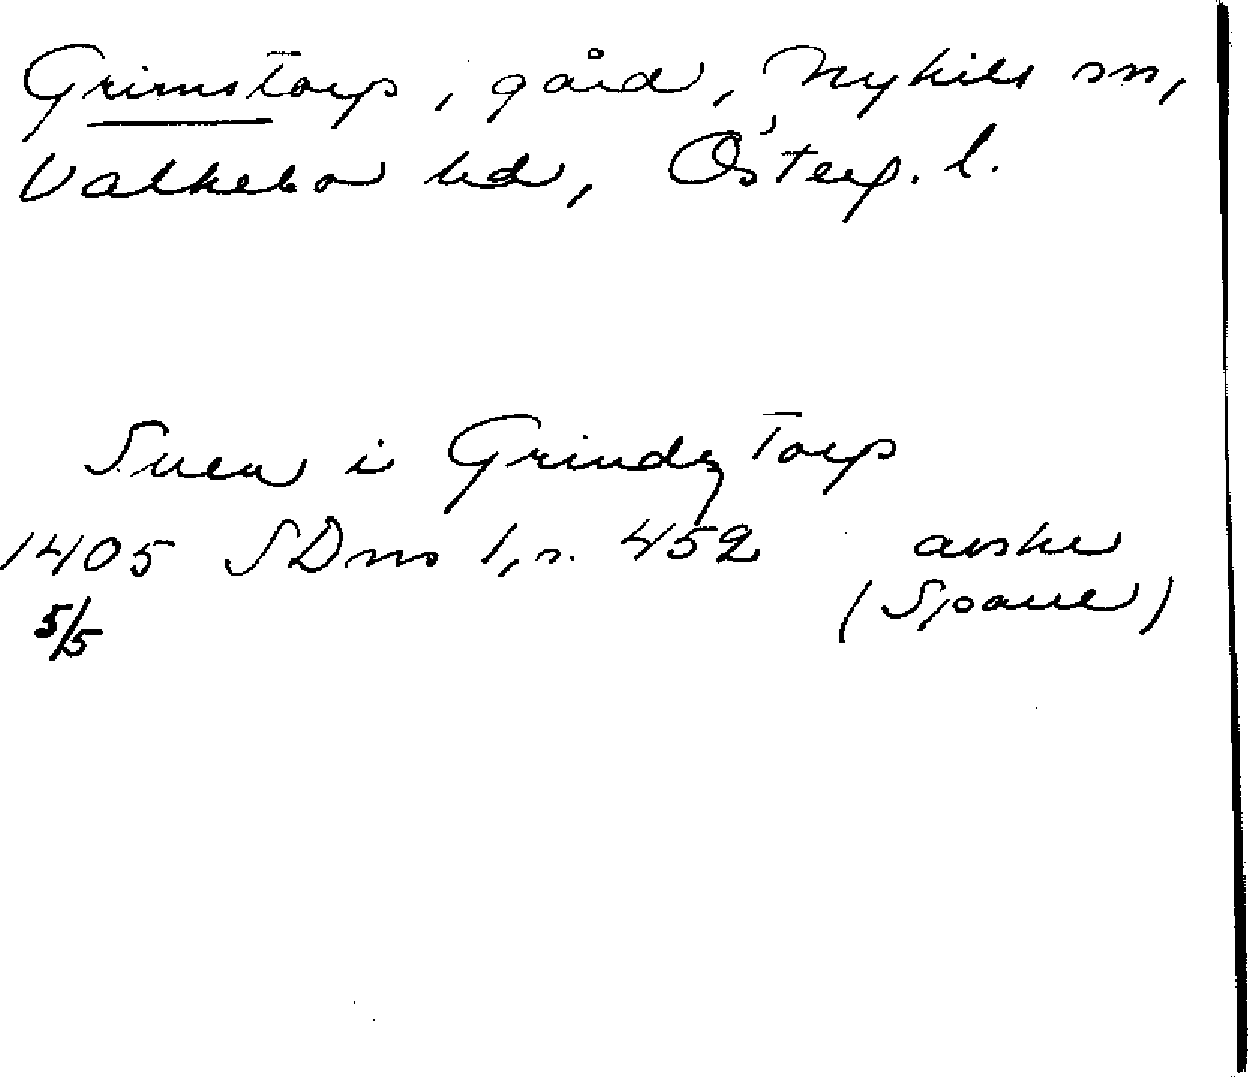 Grimstorp, gård, Nykils sn,
Valkebo hd, Österg. l.
Suen i Grindzstorp
1405 SDns 1, s. 452 avskr
5/5 (Spaue)